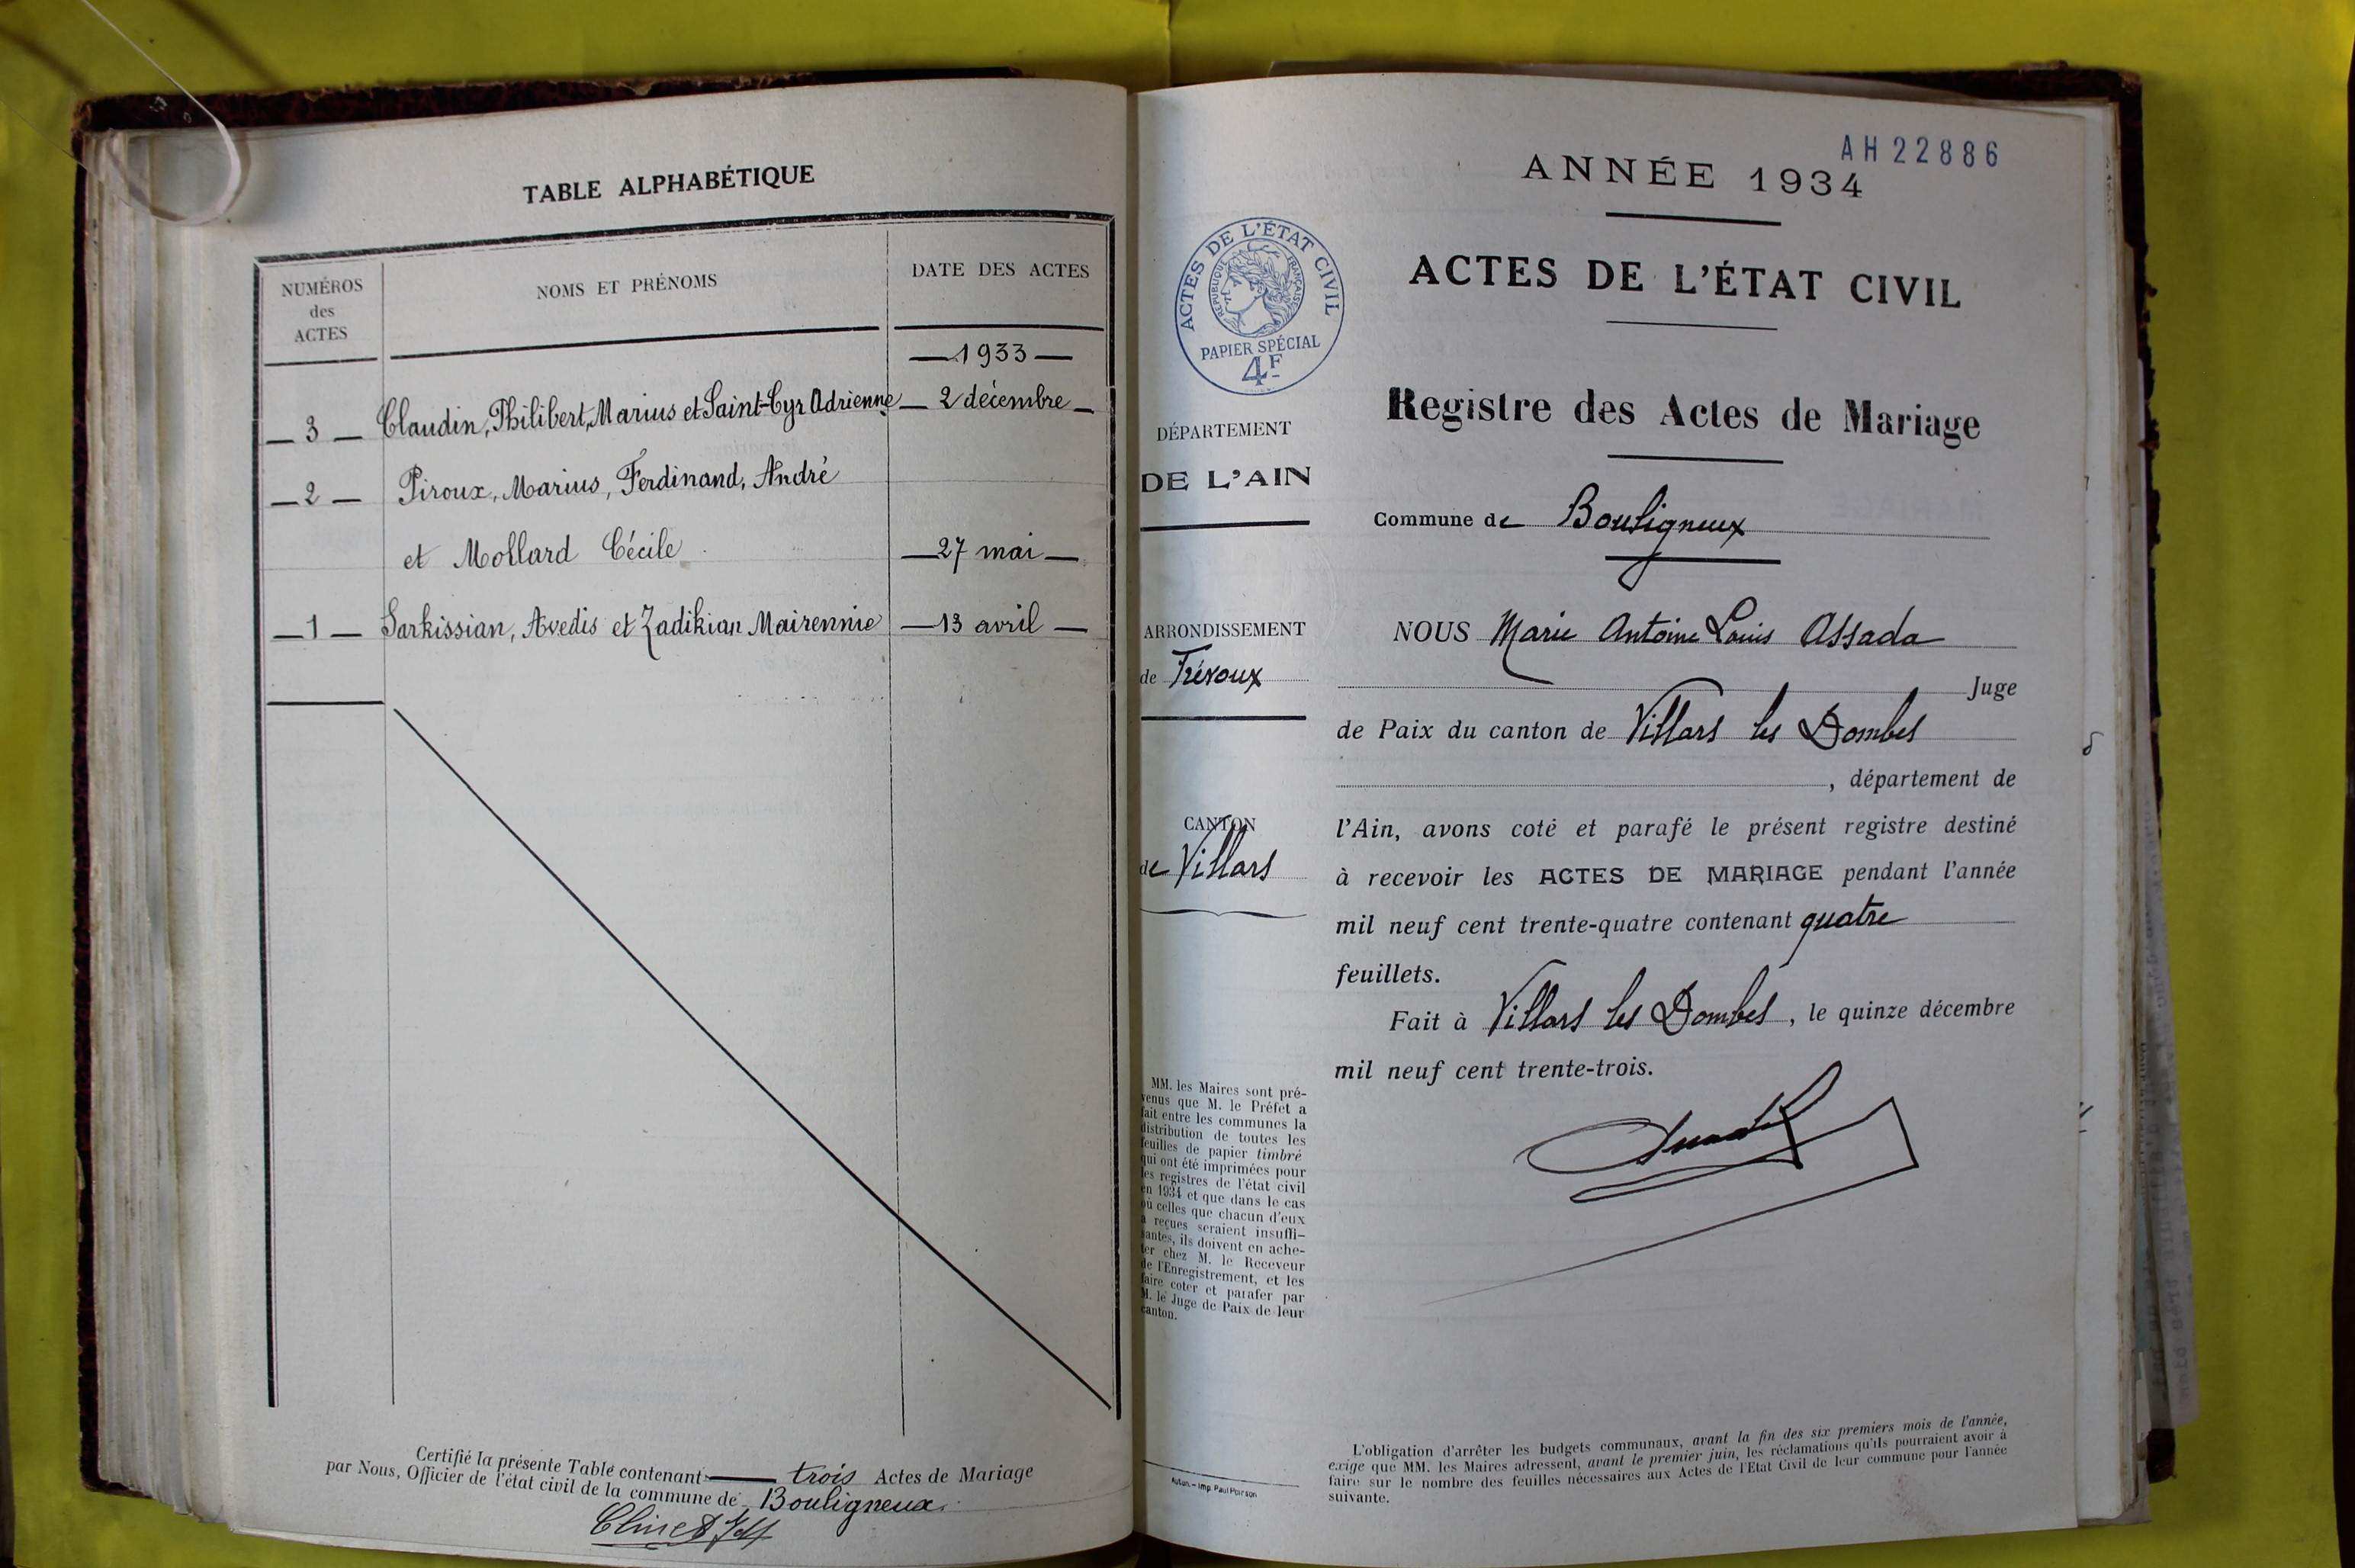 TABLE ALPHABÉTIQUE
NUMÉROS
des
ACTES
NOMS ET PRÉNOMS
DATE DES ACTES
—1933—
— 3 — Claudin, Philibert, Marius et Saint-Cyr Adrienne — 2 décembre —
— 2 — Piroux, Marius, Ferdinand, André
et Mollard Cécile —27 mai—
— 1 — Sarkissian, Avedis et Zadikian Mairennie —13 avril—
Certifié la présente Table contenant trois Actes de Mariage
par Nous, Officier de l'état civil de la commune de Bouligneux.
AH22886
ANNÉE 1934
ACTES DE L'ÉTAT CIVIL
RÉPUBLIQUE FRANÇAISE
PAPIER SPÉCIAL
4F
ACTES DE L'ÉTAT CIVIL
Registre des Actes de Mariage
DÉPARTEMENT
DE L'AIN
Commune de Bouligneux
ARRONDISSEMENT
de Trévoux
CANTON
de Villars
NOUS Marie Antoine Louis Assada
Juge
de Paix du canton de Villars les Dombes
, département de
l'Ain, avons coté et parafé le présent registre destiné
à recevoir les ACTES DE MARIAGE pendant l'année
mil neuf cent trente-quatre contenant quatre
feuillets.
Fait à Villars les Dombes, le quinze décembre
mil neuf cent trente-trois.
MM. les Maires sont pré-
venus que M. le Préfet a
fait entre les communes la
distribution de toutes les
feuilles de papier timbré
qui ont été imprimées pour
les registres de l'état civil
en 1934 et que dans le cas
où celles que chacun d'eux
a reçues seraient insuffi-
santes, ils doivent en ache-
ter chez M. le Receveur
de l'Enregistrement, et les
faire coter et parafer par
M. le Juge de Paix de leur
canton.
Autun. – Imp. Paul Poirson
L'obligation d'arrêter les budgets communaux, avant la fin des six premiers mois de l'année,
exige que MM. les Maires adressent, avant le premier juin, les réclamations qu'ils pourraient avoir à
faire sur le nombre des feuilles nécessaires aux Actes de l'Etat Civil de leur commune pour l'année
suivante.